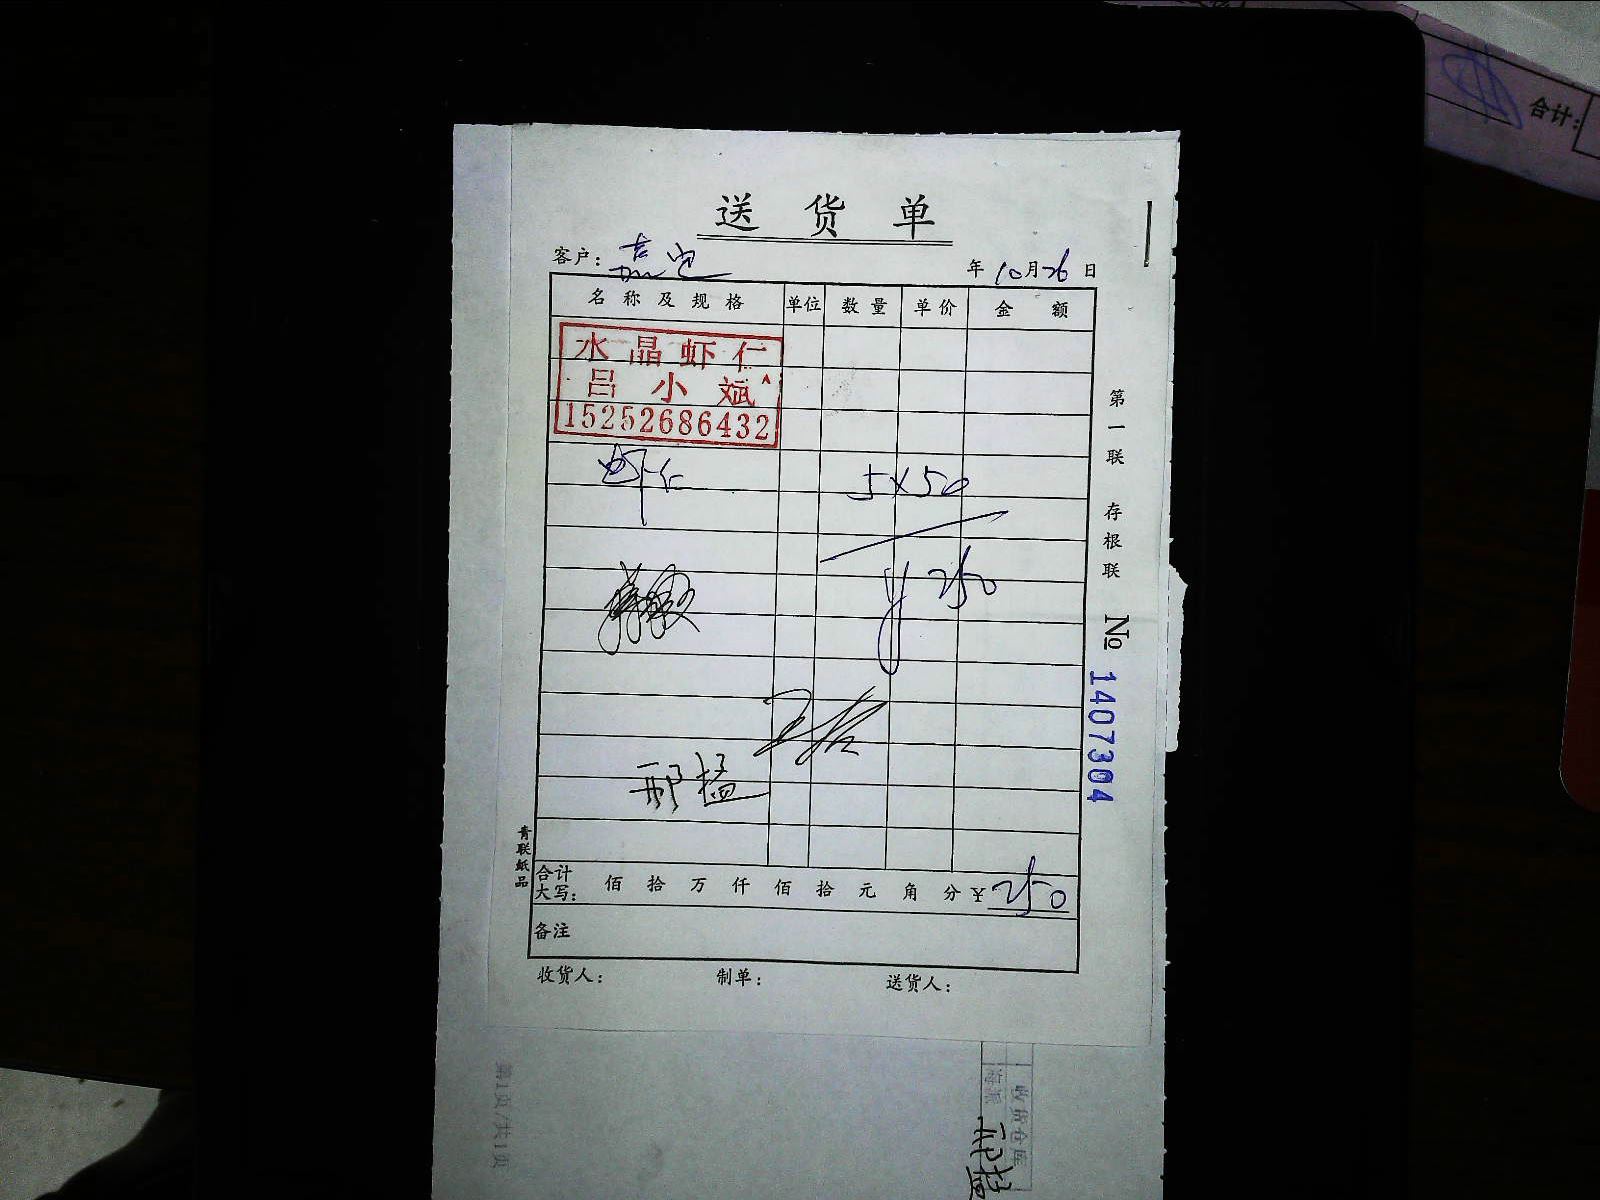 合计:
送货单
客户: 嘉定 年10月26日
名称及规格 单位 数量 单价 金额
水晶虾仁
吕小斌
15252686432
虾仁 5×50
¥250
邢
合计大写: 佰拾万仟佰拾元角分¥250
备注
收货人: 制单: 送货人:
第一联 存根联 № 1407304
青联纸品
第1页/共1页
收货仓库